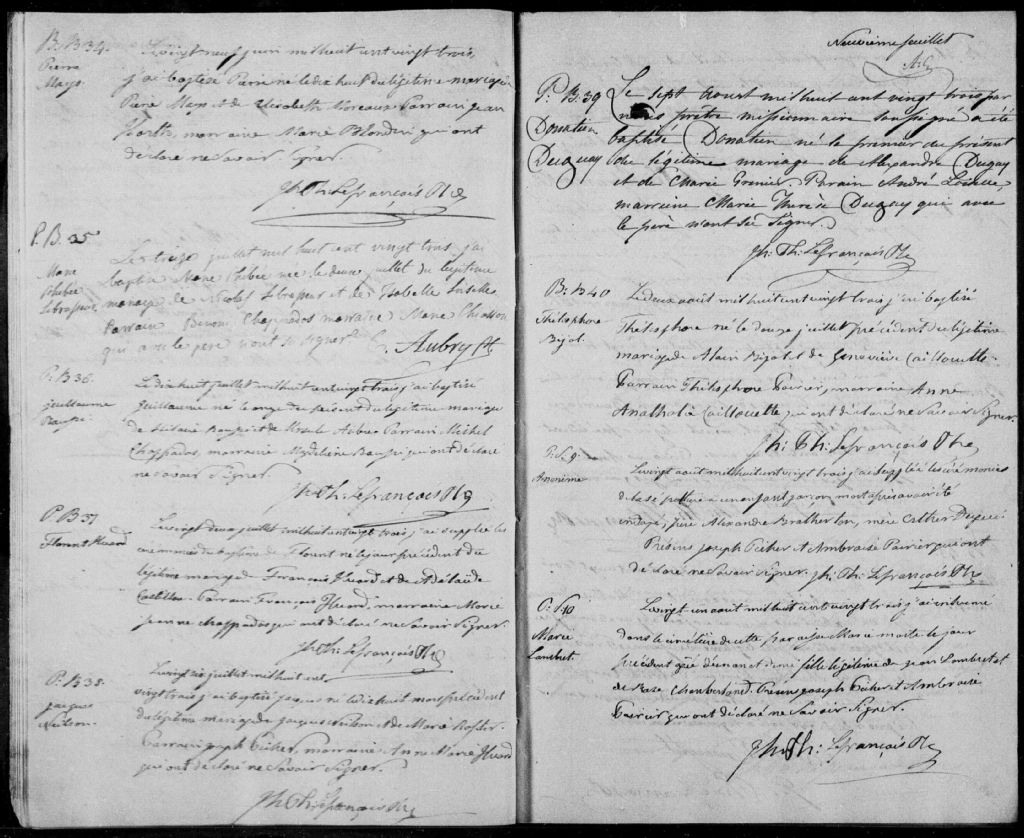 B. B 34.
Pierre
Mays.
Le vingt neuf juin mil huit cent vingt trois,
j'ai baptisé Pierre né le dix huit du légitime mariage de
Pierre Mays et de Elisabeth Parrain Jean
marraine Marie Blondin qui ont
déclaré ne savoir signer.
Jh. Th. Lefrançois Ptre
P. B. 35
Marie
Phebée
Le treize juillet mil huit cent vingt trois, j'ai
baptisé Marie Phebée née le deux juillet du légitime
mariage de Nicolas et de Isabelle
Parrain Chappados marraine Marie Chiasson
qui avec le père n'ont su signer.
Aubry Pt.
P. B 36.
Guillaume
Le dix huit juillet mil huit cent vingt trois j'ai baptisé
Guillaume né le onze du présent du légitime mariage
de et de Ursule Parrain Michel
Chappados, marraine Magdeleine qui ont déclaré
ne savoir signer.
Jh. Th. Lefrançois Ptre
P. B 37
Florent Huard
Le vingt deux juillet mil huit cent vingt trois, j'ai supplée les
cérémonies du baptême de Florent né le jour précédent du
légitime mariage François Huard et de Adélaïde
Parrain François Huard, marraine Marie
Jeanne Chappados qui ont déclaré ne savoir signer.
Jh. Th. Lefrançois Ptre
P. B 38.
Jacques
Le vingt juillet mil huit cent
vingt trois j'ai baptisé Jacques né le dix huit mars précédent
du légitime mariage de Jacques et de Marie
Parrain Joseph marraine Anne Marie Huard
qui ont déclaré ne savoir signer.
Jh. Th. Lefrançois Ptre
Neuvième feuillet
P. B. 39
Donatien
Duguay
Le sept aoust mil huit cent vingt trois par
nous prêtre missionnaire soussigné a été
baptisé Donatien né le premier du présent
du légitime mariage de Alexandre Dugay
et de Marie Grenier. Parain André
marraine Marie Therese Duguay qui avec
le père n'ont sçu signer.
Jh. Th. Lefrançois Ptre
B. B 40
Thélesphore
Bijot.
Le deux août mil huit cent vingt trois j'ai baptisé
Thélesphore né le douze juillet précédent du légitime
mariage de Alain Bijot et de Geneviève Caillouette.
Parrain Thélesphore Poirier, marraine Anne
Caillouette qui ont déclaré ne savoir signer.
Jh. Th. Lefrançois Ptre
P. S. 9.
Anonime
Le vingt août mil huit cent vingt trois j'ai supplée les cérémonies
de la sépulture à un enfant garçon mort après avoir été
ondoyé, père Alexandre Bratherton, mère Esther
Présens Joseph et Ambroise Poirier qui ont
déclaré ne savoir signer. Jh. Th. Lefrançois Ptre
S 10
Marie
Lambret.
Le vingt un août mil huit cent vingt trois j'ai inhumé
dans le cimetière de cette paroisse Marie morte le jour
précédent agée d'un an et demi fille légitime de Jean Lambret et
de Rose Chamberland. Présens Joseph et Ambroise
Poirier qui ont déclaré ne savoir signer.
Jh. Th. Lefrançois Ptre